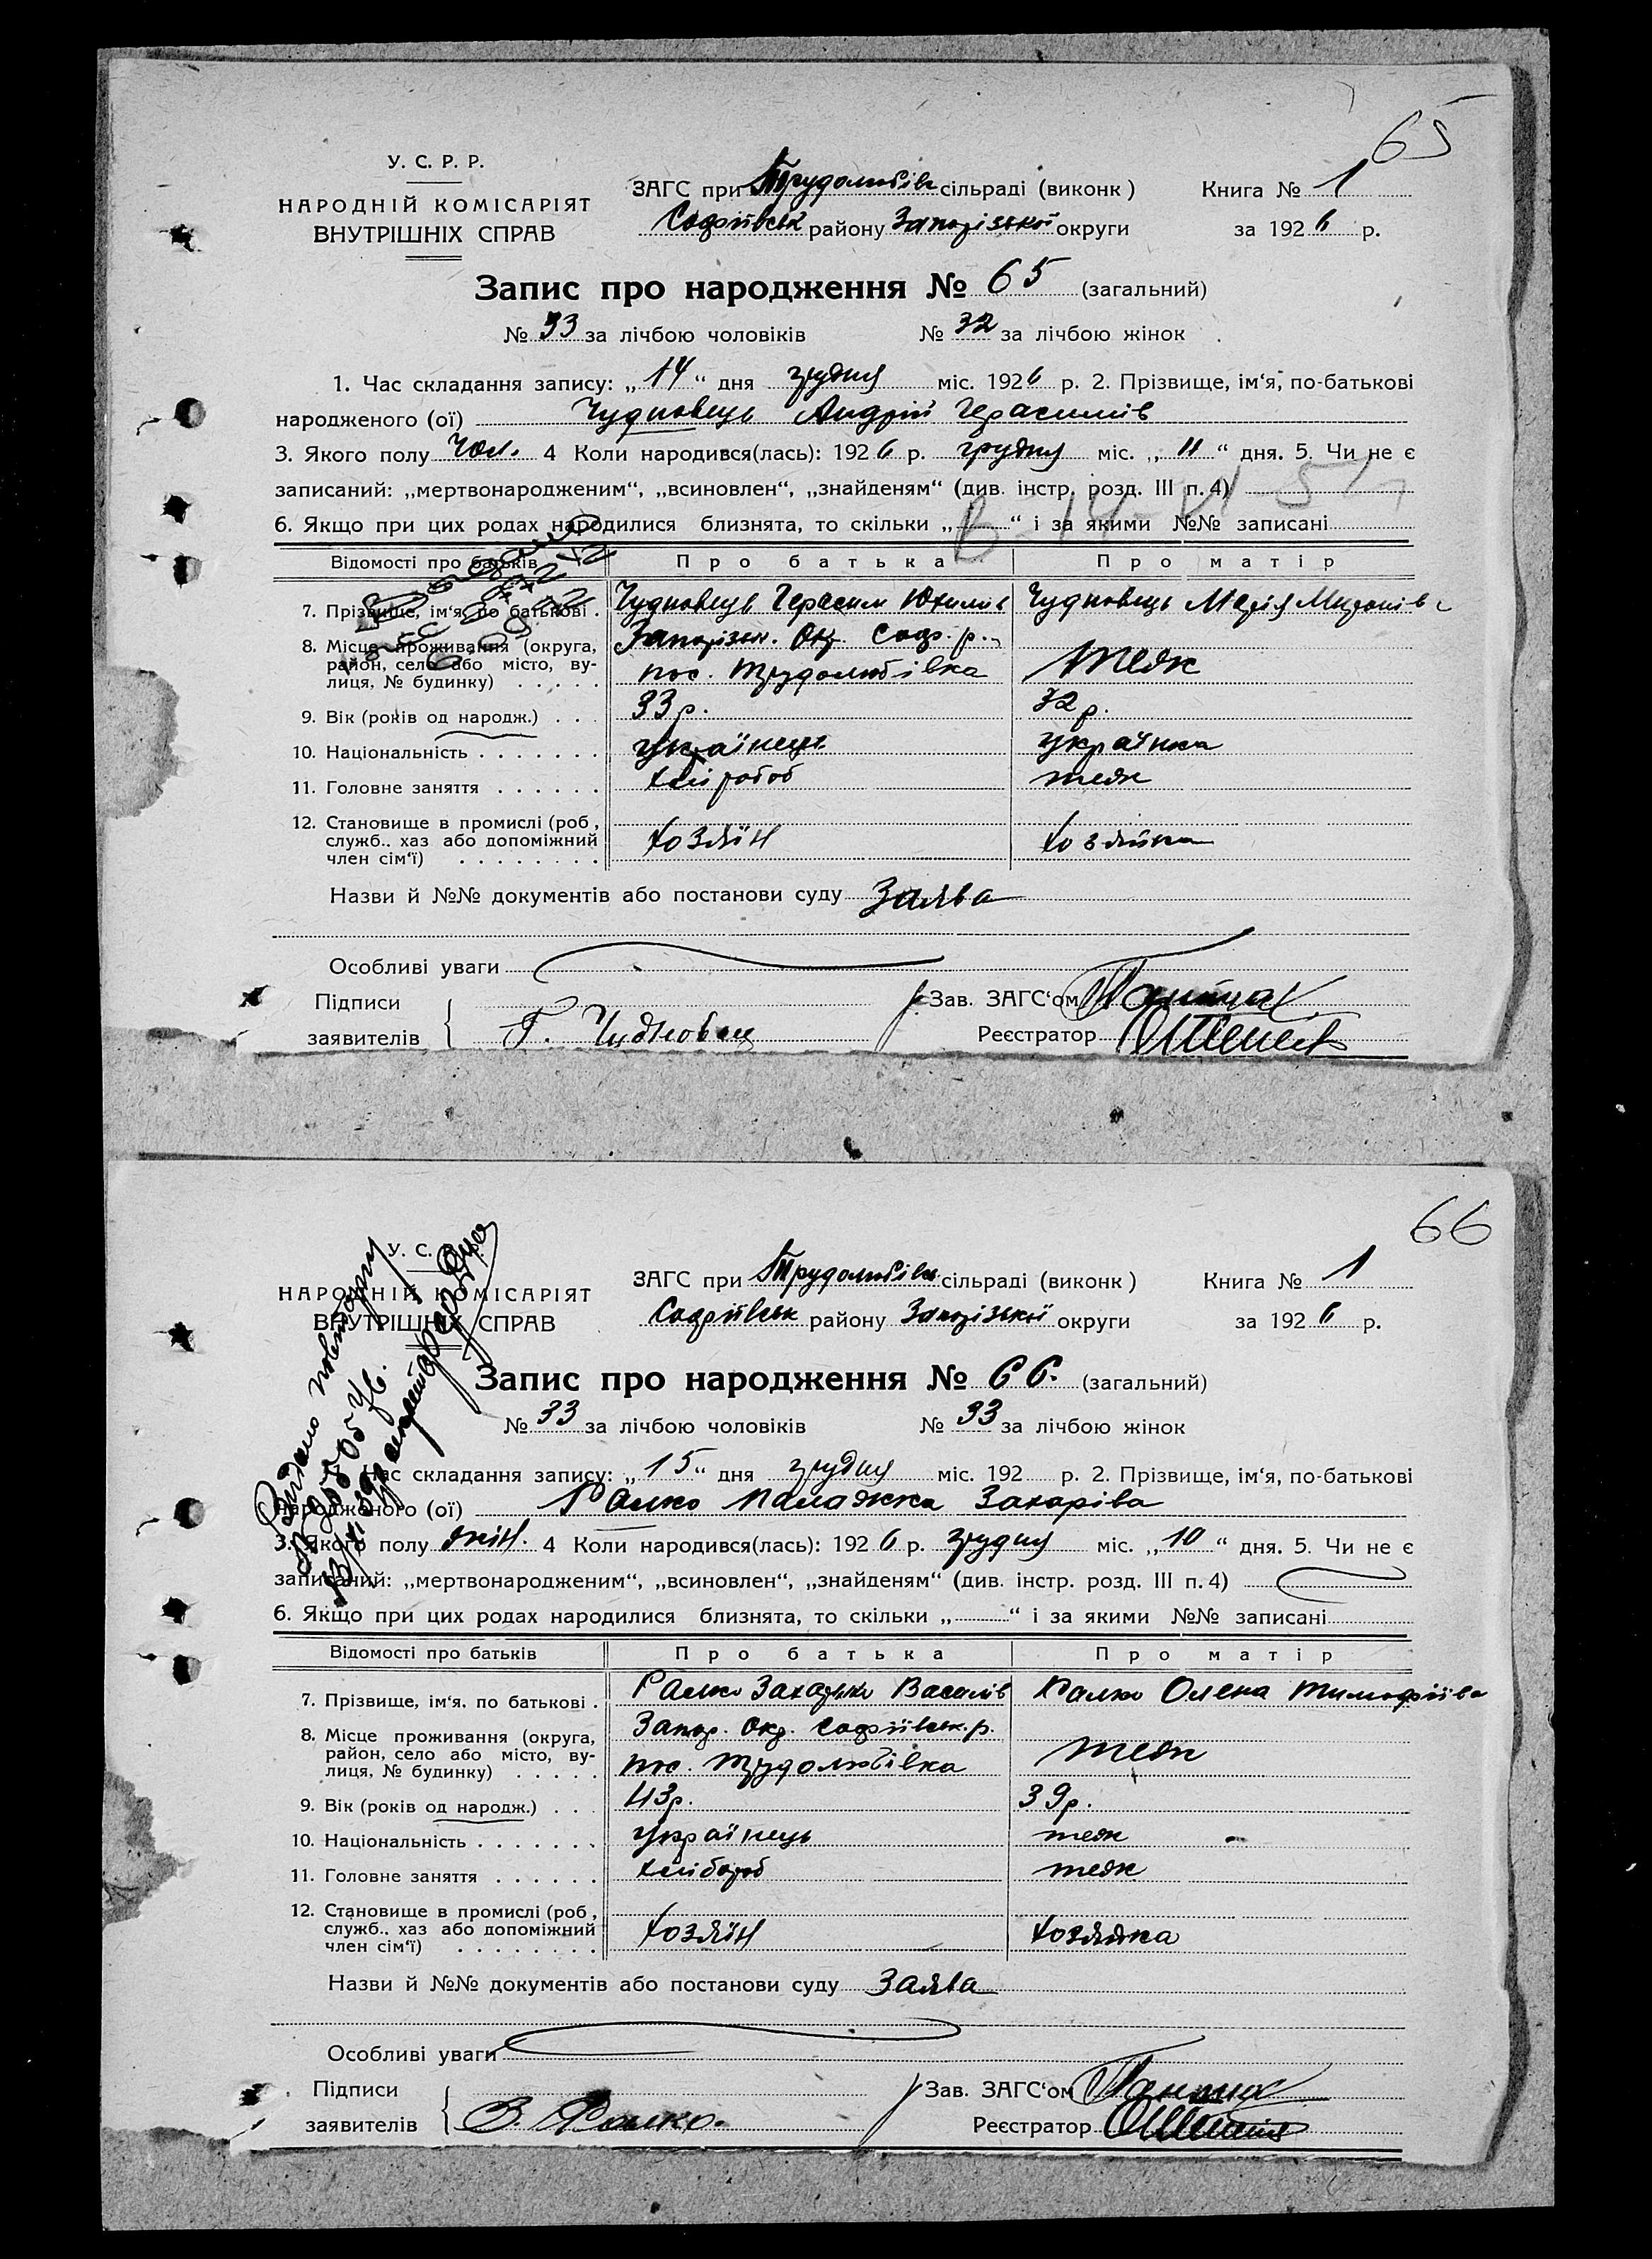 65
У. С. Р. Р.
НАРОДНІЙ КОМІСАРІЯТ
ВНУТРІШНІХ СПРАВ
ЗАГС при Трудолюбівк сільраді (виконк)
Книга № 1
Софіївськ району Запорізської округи
за 1926 р.
Запис про народження № 65 (загальний)
№ 33 за лічбою чоловіків № 32 за лічбою жінок
1. Час складання запису: „14“ дня грудня міс. 1926 р. 2. Прізвище, ім‘я, по-батькові
народженого (ої) Чудновець Андрій Герасимів
3. Якого полу Чол. 4 Коли народився(лась): 1926 р. грудня міс. „11“ дня. 5. Чи не є
записаний: „мертвонародженим“, „всиновлен“, „знайденям“ (див. інстр. розд. III п. 4)
6. Якщо при цих родах народилися близнята, то скільки „ “ і за якими №№ записані
Відомості про батьків Про батька Про матір
7. Прізвище, ім‘я, по батькові . Чудновець Герасим Юхимів Чудновець Марія Миронів
8. Місце проживання (округа, район, село або місто, вулиця, № будинку) Запорізьк. Окр. Соф. р. пос. Трудолюбівка теж
9. Вік (років од народж.) 33 р. 32 р.
10. Національність українець українка
11. Головне заняття хліробоб теж
12. Становище в промислі (роб, служб.. хаз або допоміжний член сім‘ї) хозяїн хозяйка
Назви й №№ документів або постанови суду Заява
Особливі уваги
Підписи
заявителів Г. Чудновец
Зав. ЗАГС‘ом
Реєстратор
66
У. С.
НАРОДНІЙ КОМІСАРІЯТ
ВНУТРІШНІХ СПРАВ
ЗАГС при Трудолюбівк сільраді (виконк)
Книга № 1
Софіївськ району Запорізської округи
за 1926 р.
Видано повторну
Запис про народження № 66. (загальний)
№ 33 за лічбою чоловіків № 33 за лічбою жінок
Час складання запису: „15“ дня грудня міс. 192 р. 2. Прізвище, ім‘я, по-батькові
народженого (ої) Ралко Палажка Захаріва
3. Якого полу жін. 4 Коли народився(лась): 1926 р. грудня міс. „10“ дня. 5. Чи не є
записаний: „мертвонародженим“, „всиновлен“, „знайденям“ (див. інстр. розд. III п. 4)
6. Якщо при цих родах народилися близнята, то скільки „ “ і за якими №№ записані
Відомості про батьків Про батька Про матір
7. Прізвище, ім‘я, по батькові . Ралко Захарько Василів Ралко Олена Тимофіїва
8. Місце проживання (округа, район, село або місто, вулиця, № будинку) Запор. Окр. Софіївськ. р. пос. Трудолюбівка теж
9. Вік (років од народж.) 43 р. 39 р.
10. Національність українець теж
11. Головне заняття хліботоб теж
12. Становище в промислі (роб, служб.. хаз або допоміжний член сім‘ї) хозяїн хозяйка
Назви й №№ документів або постанови суду Заява
Особливі уваги
Підписи
заявителів З. Ралко.
Зав. ЗАГС‘ом
Реєстратор